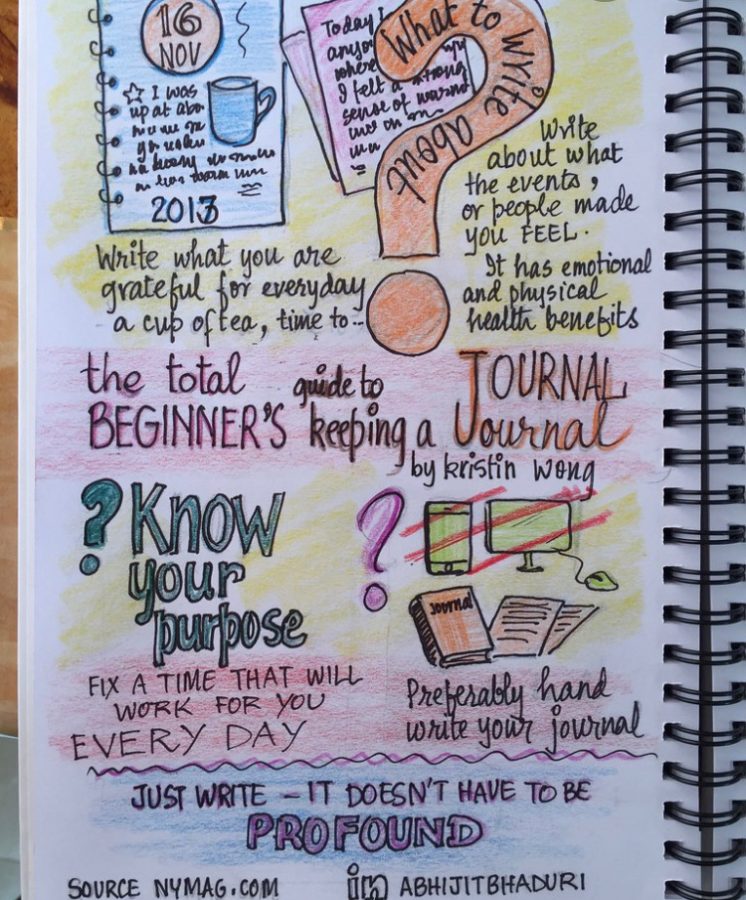 16
NOV
I was
up at
2013
Today I
where
I felt a strong
sense of
What to write about
Write
about what
the events,
or people made
you FEEL.
It has emotional
and physical
health benefits
Write what you are
grateful for everyday
a cup of tea, time to..
the total guide to JOURNAL
BEGINNER'S keeping a Journal
by kristin wong
? Know
your
purpose
?
Journal
FIX A TIME THAT WILL
WORK FOR YOU
EVERY DAY
Preferably hand
write your journal
JUST WRITE – IT DOESN'T HAVE TO BE
PROFOUND
SOURCE NYMAG.COM in ABHIJITBHADURI